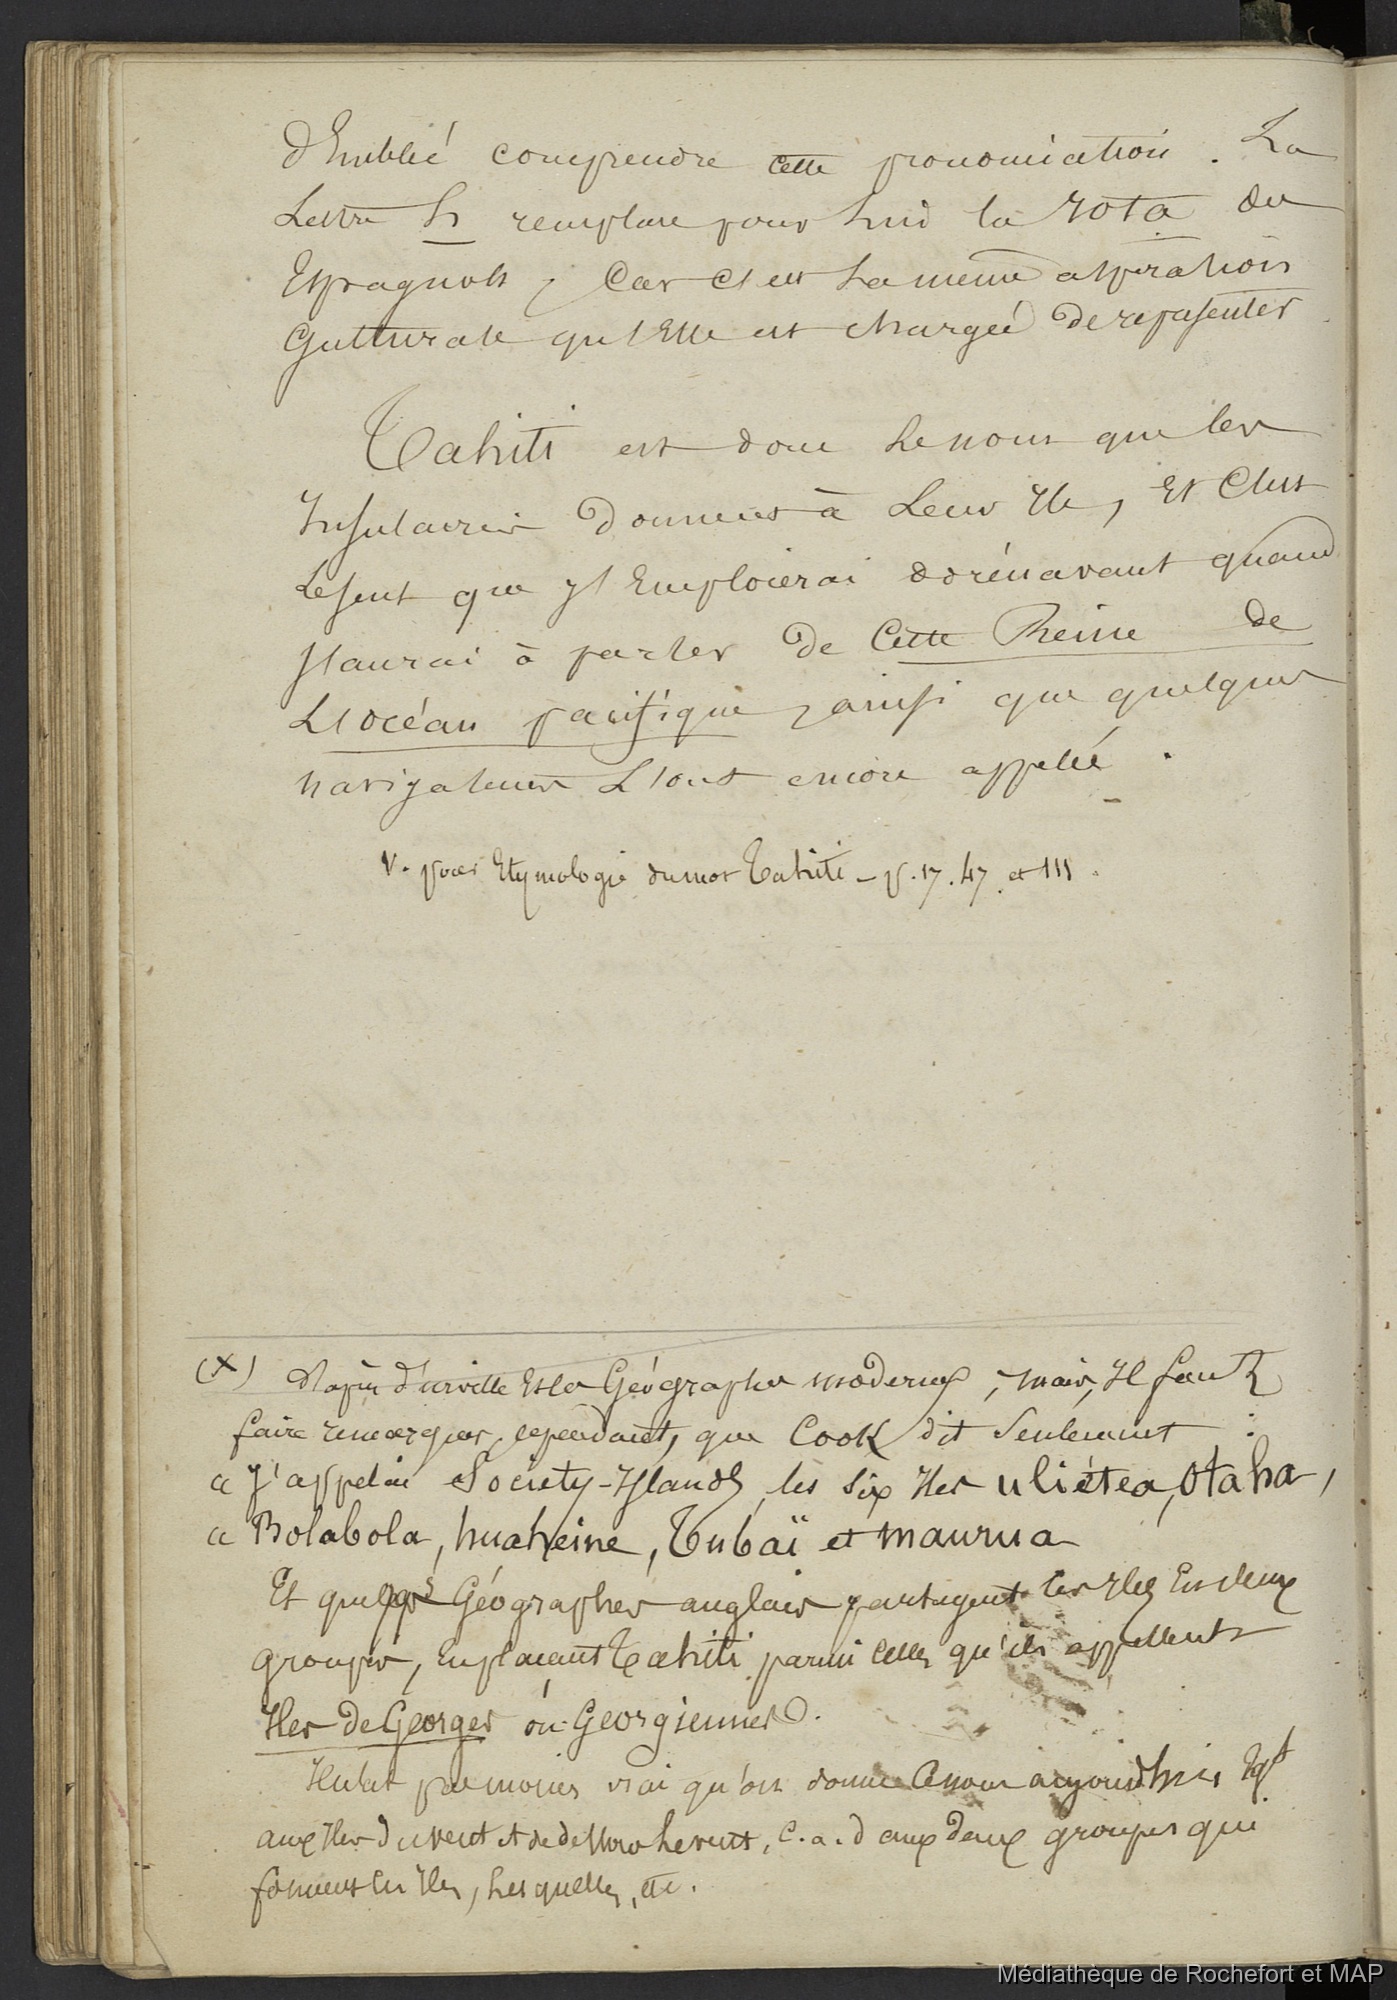 d'Emblée comprendre cette prononciation. La
Lettre h remplace pour lui la rota des
Espagnols, Car c'est la même aspiration
Gutturale qu'Elle est chargée de représenter.
Tahiti est donc le nom que les
Insulaires donnent à Leur Ile, Et C'est
Le seul que j'Emploierai dorénavant quand
J'aurai à parler de Cette Reine de
L'océan pacifique, ainsi que quelques
navigateurs L'ont encore appelée.
V. pour Etymologie du mot Tahiti - p. 17. 47. et 111.
(X) d'après d'urville Et les Géographes modernes, mais, Il faut
faire remarquer, cependant, que Cook dit Seulement :
« J'appelai Society-Islands, les six Iles uliétea, Otaha,
« Bolabola, huaheine, Tubaï et maurua
Et quelques Géographes anglais partagent les Iles En deux
groupes, En plaçant Tahiti parmi celles qu'ils appellent
Iles de Georges ou Georgiennes.
Il n'est pas moins vrai qu'on donne Ce nom aujourd'hui,
aux Iles du vent et de dessous le vent, c. a. d aux deux groupes que
forment les Iles, Lesquelles, etc.
Médiathèque de Rochefort et MAP